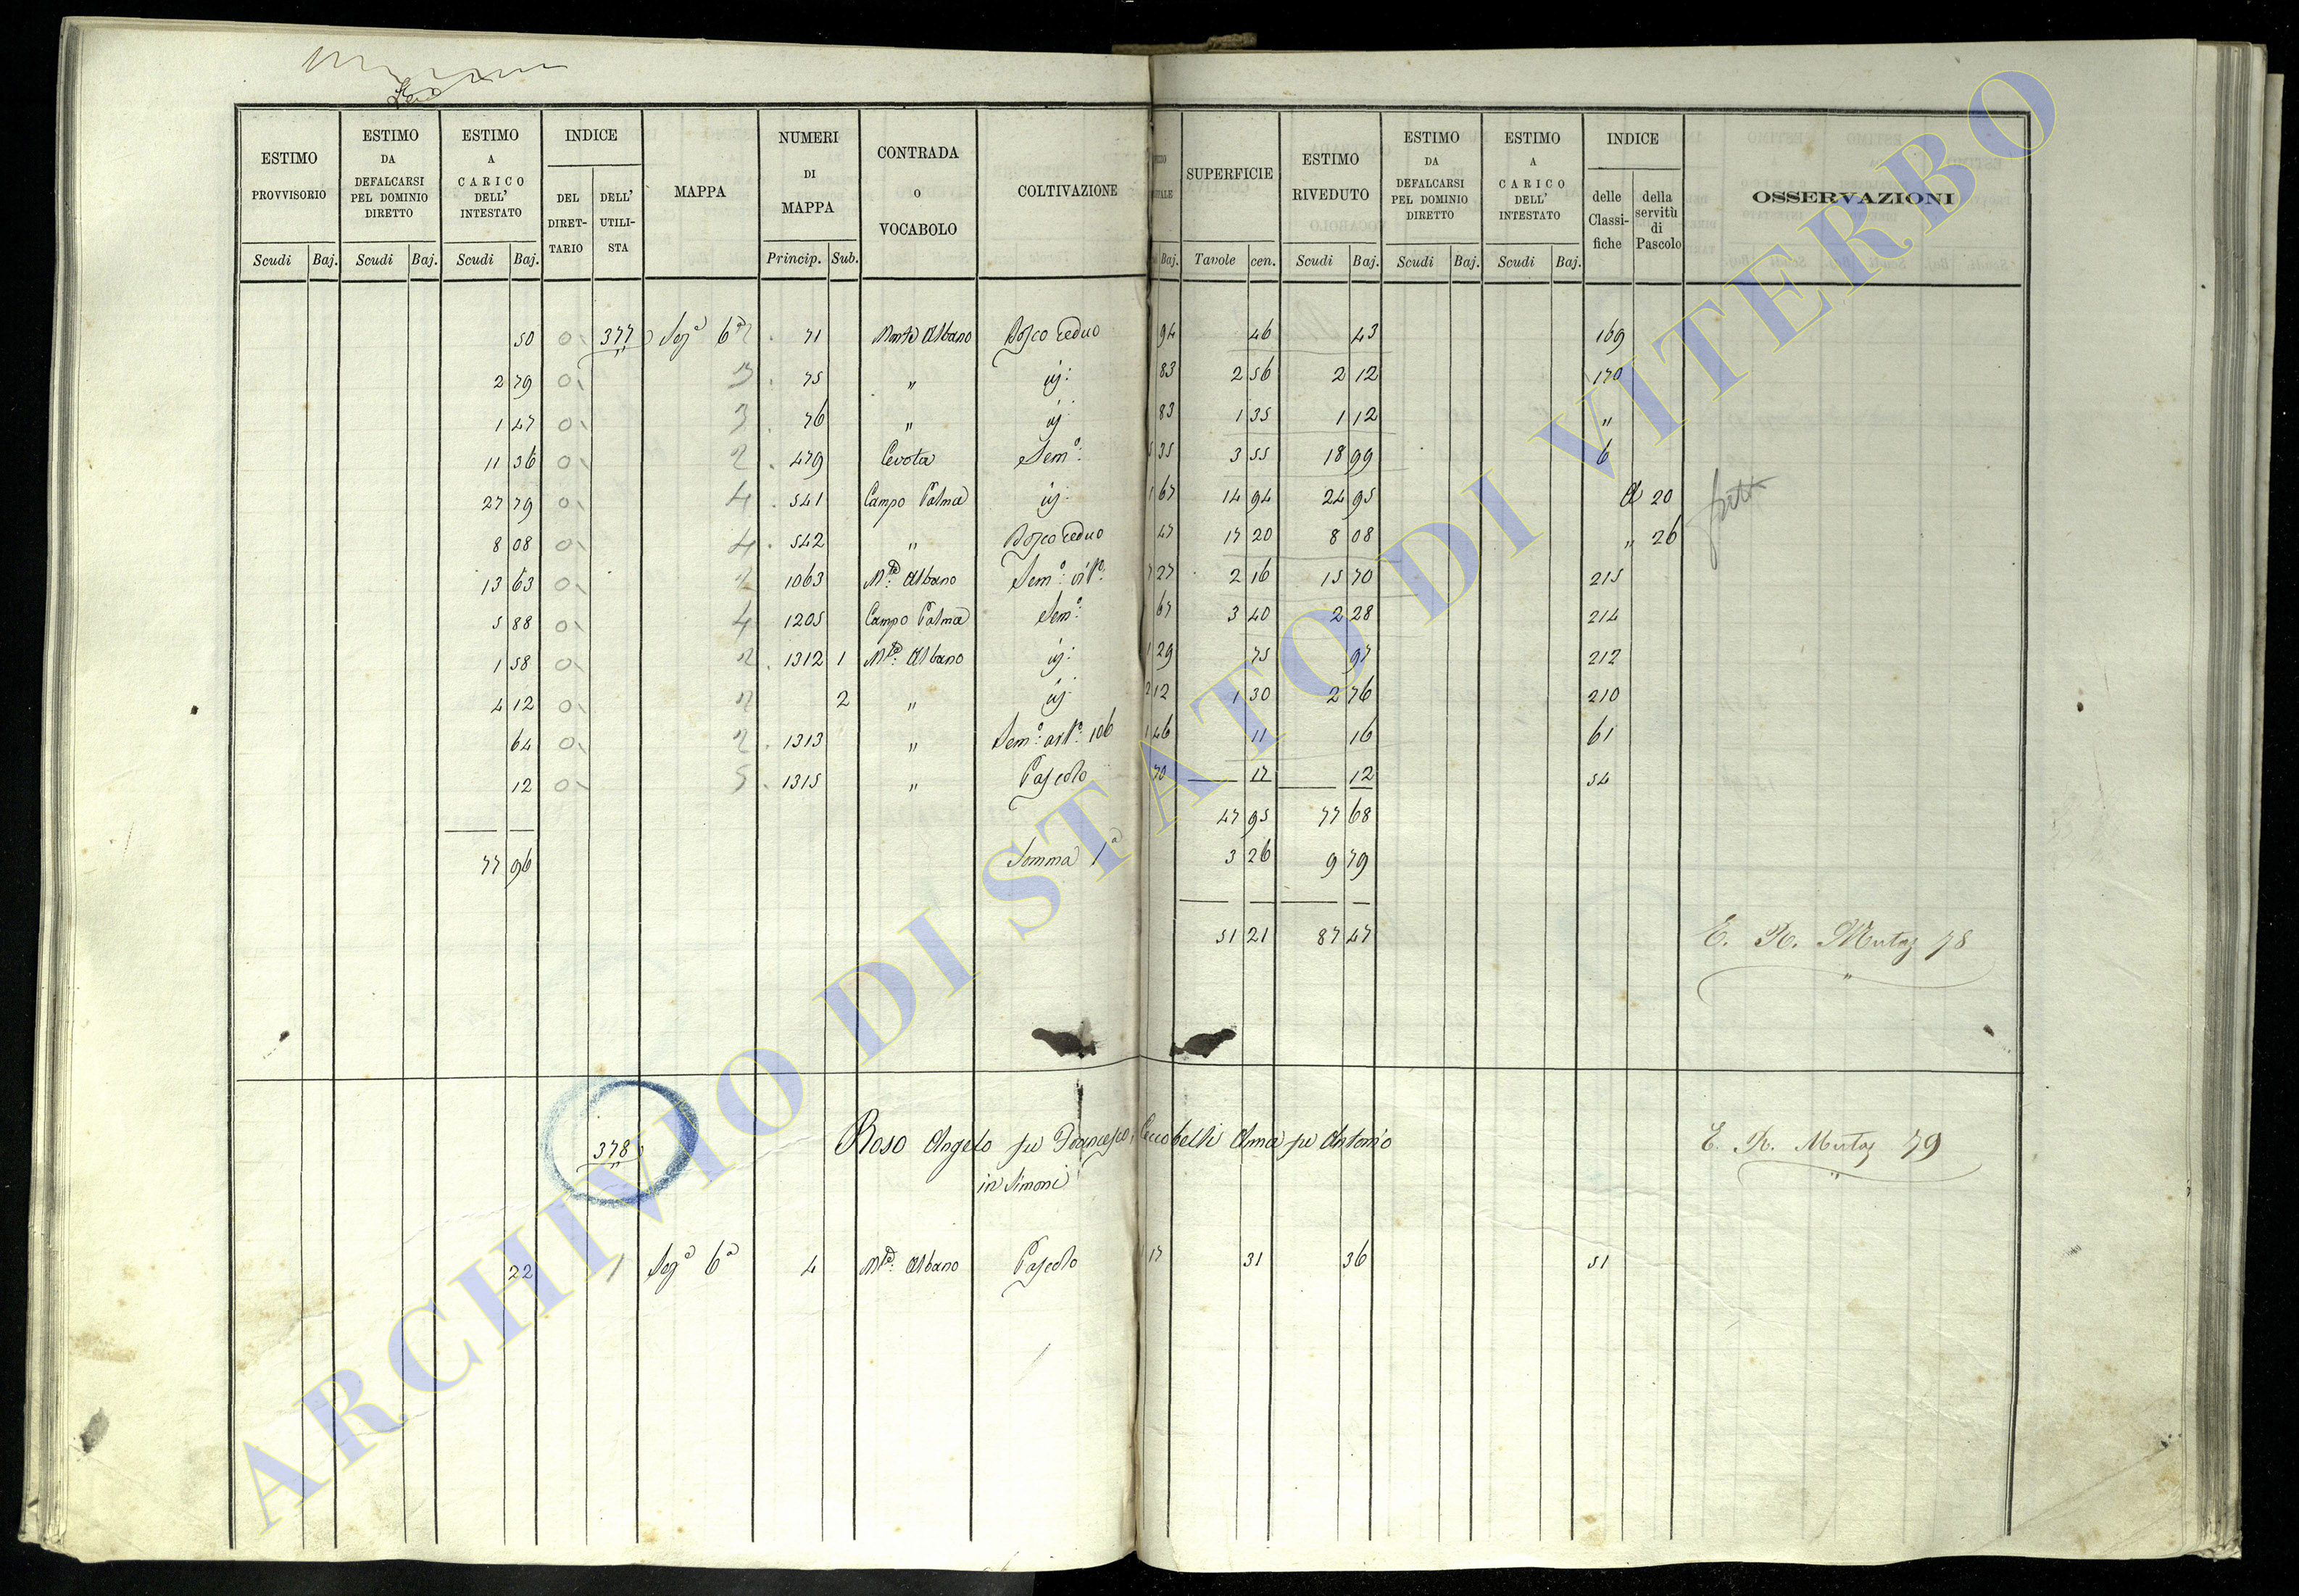 ESTIMO PROVVISORIO Scudi Baj.
ESTIMO DA DEFALCARSI PEL DOMINIO DIRETTO Scudi Baj.
ESTIMO A CARICO DELL' INTESTATO Scudi Baj.
INDICE DEL DIRETTARIO DELL' UTILISTA
MAPPA
NUMERI DI MAPPA Princip. Sub.
CONTRADA o VOCABOLO
COLTIVAZIONE
Baj.
SUPERFICIE Tavole cen.
ESTIMO RIVEDUTO Scudi Baj.
ESTIMO DA DEFALCARSI PEL DOMINIO DIRETTO Scudi Baj.
ESTIMO A CARICO DELL' INTESTATO Scudi Baj.
INDICE delle Classifiche della servitù di Pascolo
OSSERVAZIONI
50 0 377 Sezª 6ª 2 71 Monte Albano Bosco ceduo 94 46 43 169
2 79 0 3 75 " id: 83 2 56 2 12 170
1 47 0 3 76 " id 83 1 35 1 12 "
11 36 0 2 479 Cevota Semº: 5 35 3 55 18 99 6
27 79 0 4 541 Campo Palma id: 1 67 14 94 24 95 A 20
8 08 0 4 542 " Bosco ceduo 47 17 20 8 08 " 26
13 63 0 2 1063 Mte: Albano Semº: vitº: 7 27 2 16 15 70 215
5 88 0 4 1205 Campo Palma Semº: 67 3 40 2 28 214
1 58 0 2 1312 1 Mte: Albano id: 1 29 75 97 212
4 12 0 2 2 " id 2 12 1 30 2 76 210
64 0 2 1313 " Semº: artº: 106 1 46 11 16 61
12 0 5 1315 " Pascolo 70 17 12 54
47 95 77 68
77 96 Somma 1ª 3 26 9 79
51 21 87 47 E. R. Mutaz 78
378 Boso Angelo fu Francesco, Ceccobelli Anna fu Antonio E. R. Mutaz 79
in Simoni
22 1 Sezª 6ª 4 Mte: Albano Pascolo 1 17 31 36 51
ARCHIVIO DI STATO DI VITERBO